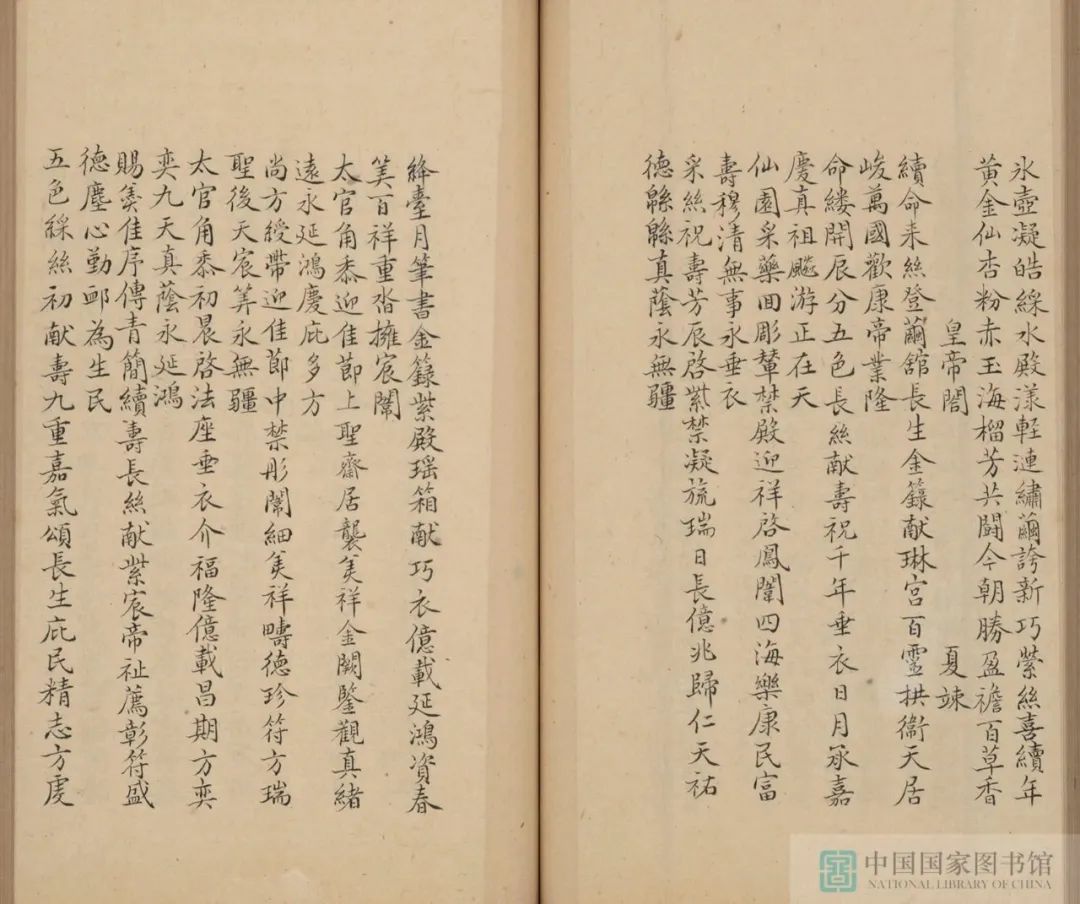 氷壺凝皓綵水殿漾輕漣繡繭誇新巧縈絲喜續年
黄金仙杏粉赤玉海榴芳共鬪今朝勝盈襜百草香
皇帝閤 夏竦
續命来絲登繭舘長生金籙献琳宫百靈拱衞天居
峻萬國歡康帝業隆
命縷開辰分五色長絲献壽祝千年垂衣日月承嘉
慶真祖飈游正在天
仙園采藥回彫輦禁殿迎祥啓鳳闈四海樂康民富
壽穆清無事永垂衣
采絲祝壽芳辰啓紫禁凝旒瑞日長億兆歸仁天祐
德緜緜真蔭永無疆
絳臺月筆書金籙紫殿瑶箱献巧衣億載延鴻資春
筭百祥重沓擁宸闈
太官角黍迎佳節上聖齋居襲美祥金闕鑒觀真緒
遠永延鴻慶庇多方
尚方綬帶迎佳節中禁彤闈細美祥疇德珍符方瑞
聖後天宸筭永無疆
太官角黍初晨啓法座垂衣介福隆億載昌期方奕
奕九天真蔭永延鴻
賜羮佳序傳青簡續壽長絲献紫宸帝祉薦彰符盛
德塵心勤卹為生民
五色綵絲初献壽九重嘉氣頌長生庇民精志方虔
中国国家图书馆
NATIONAL LIBRARY OF CHINA